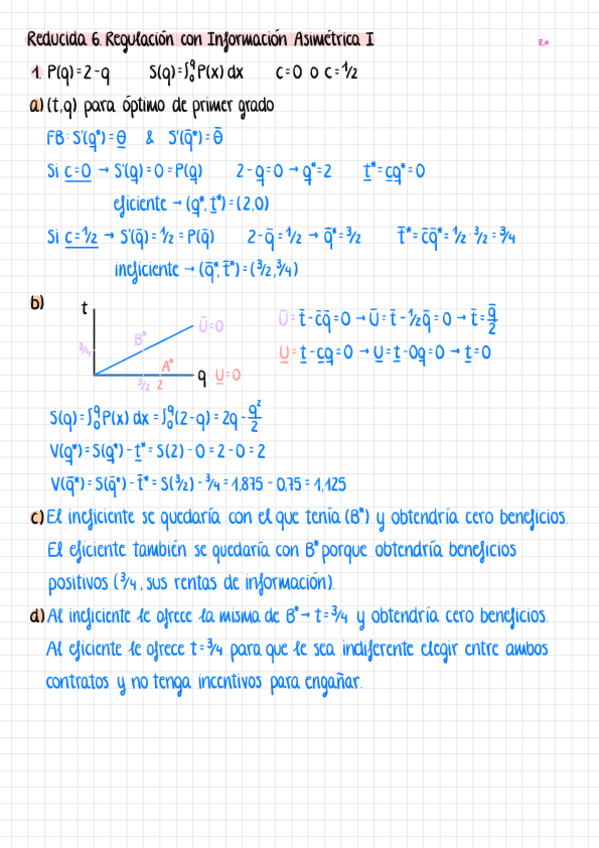 Reducida 6. Regulación con Información Asimétrica I
R*
1. P(q)=2-q S(q)=∫₀^q P(x) dx c=0 o c=1/2
a) (t,q) para óptimo de primer grado
FB: S'(q̲*)=θ̲ & S'(q̄*)=θ̄
Si c=0 → S'(q)=0=P(q) 2-q=0 → q̲*=2 t̲*=c̲q̲*=0
eficiente → (q̲*, t̲*)=(2,0)
Si c=1/2 → S'(q̄)=1/2=P(q̄) 2-q̄=1/2 → q̄*=3/2 t̄*=c̄q̄*=1/2·3/2=3/4
ineficiente → (q̄*,t̄*)=(3/2,3/4)
b)
t
Ū=0
B*
3/4
A*
3/2 2
q U̲=0
Ū=t̄-c̄q̄=0 → Ū=t̄-1/2q̄=0 → t̄=q̄/2
U̲=t̲-c̲q̲=0 → U̲=t̲-0q̲=0 → t̲=0
S(q)=∫₀^q P(x) dx=∫₀^q(2-q)=2q-q²/2
V(q̲*)=S(q̲*)-t̲*=S(2)-0=2-0=2
V(q̄*)=S(q̄*)-t̄*=S(3/2)-3/4=1,875-0,75=1,125
c) El ineficiente se quedaría con el que tenía (B*) y obtendría cero beneficios.
El eficiente también se quedaría con B* porque obtendría beneficios
positivos (3/4, sus rentas de información).
d) Al ineficiente le ofrece la misma de B* → t=3/4 y obtendría cero beneficios.
Al eficiente le ofrece t=3/4 para que le sea indiferente elegir entre ambos
contratos y no tenga incentivos para engañar.